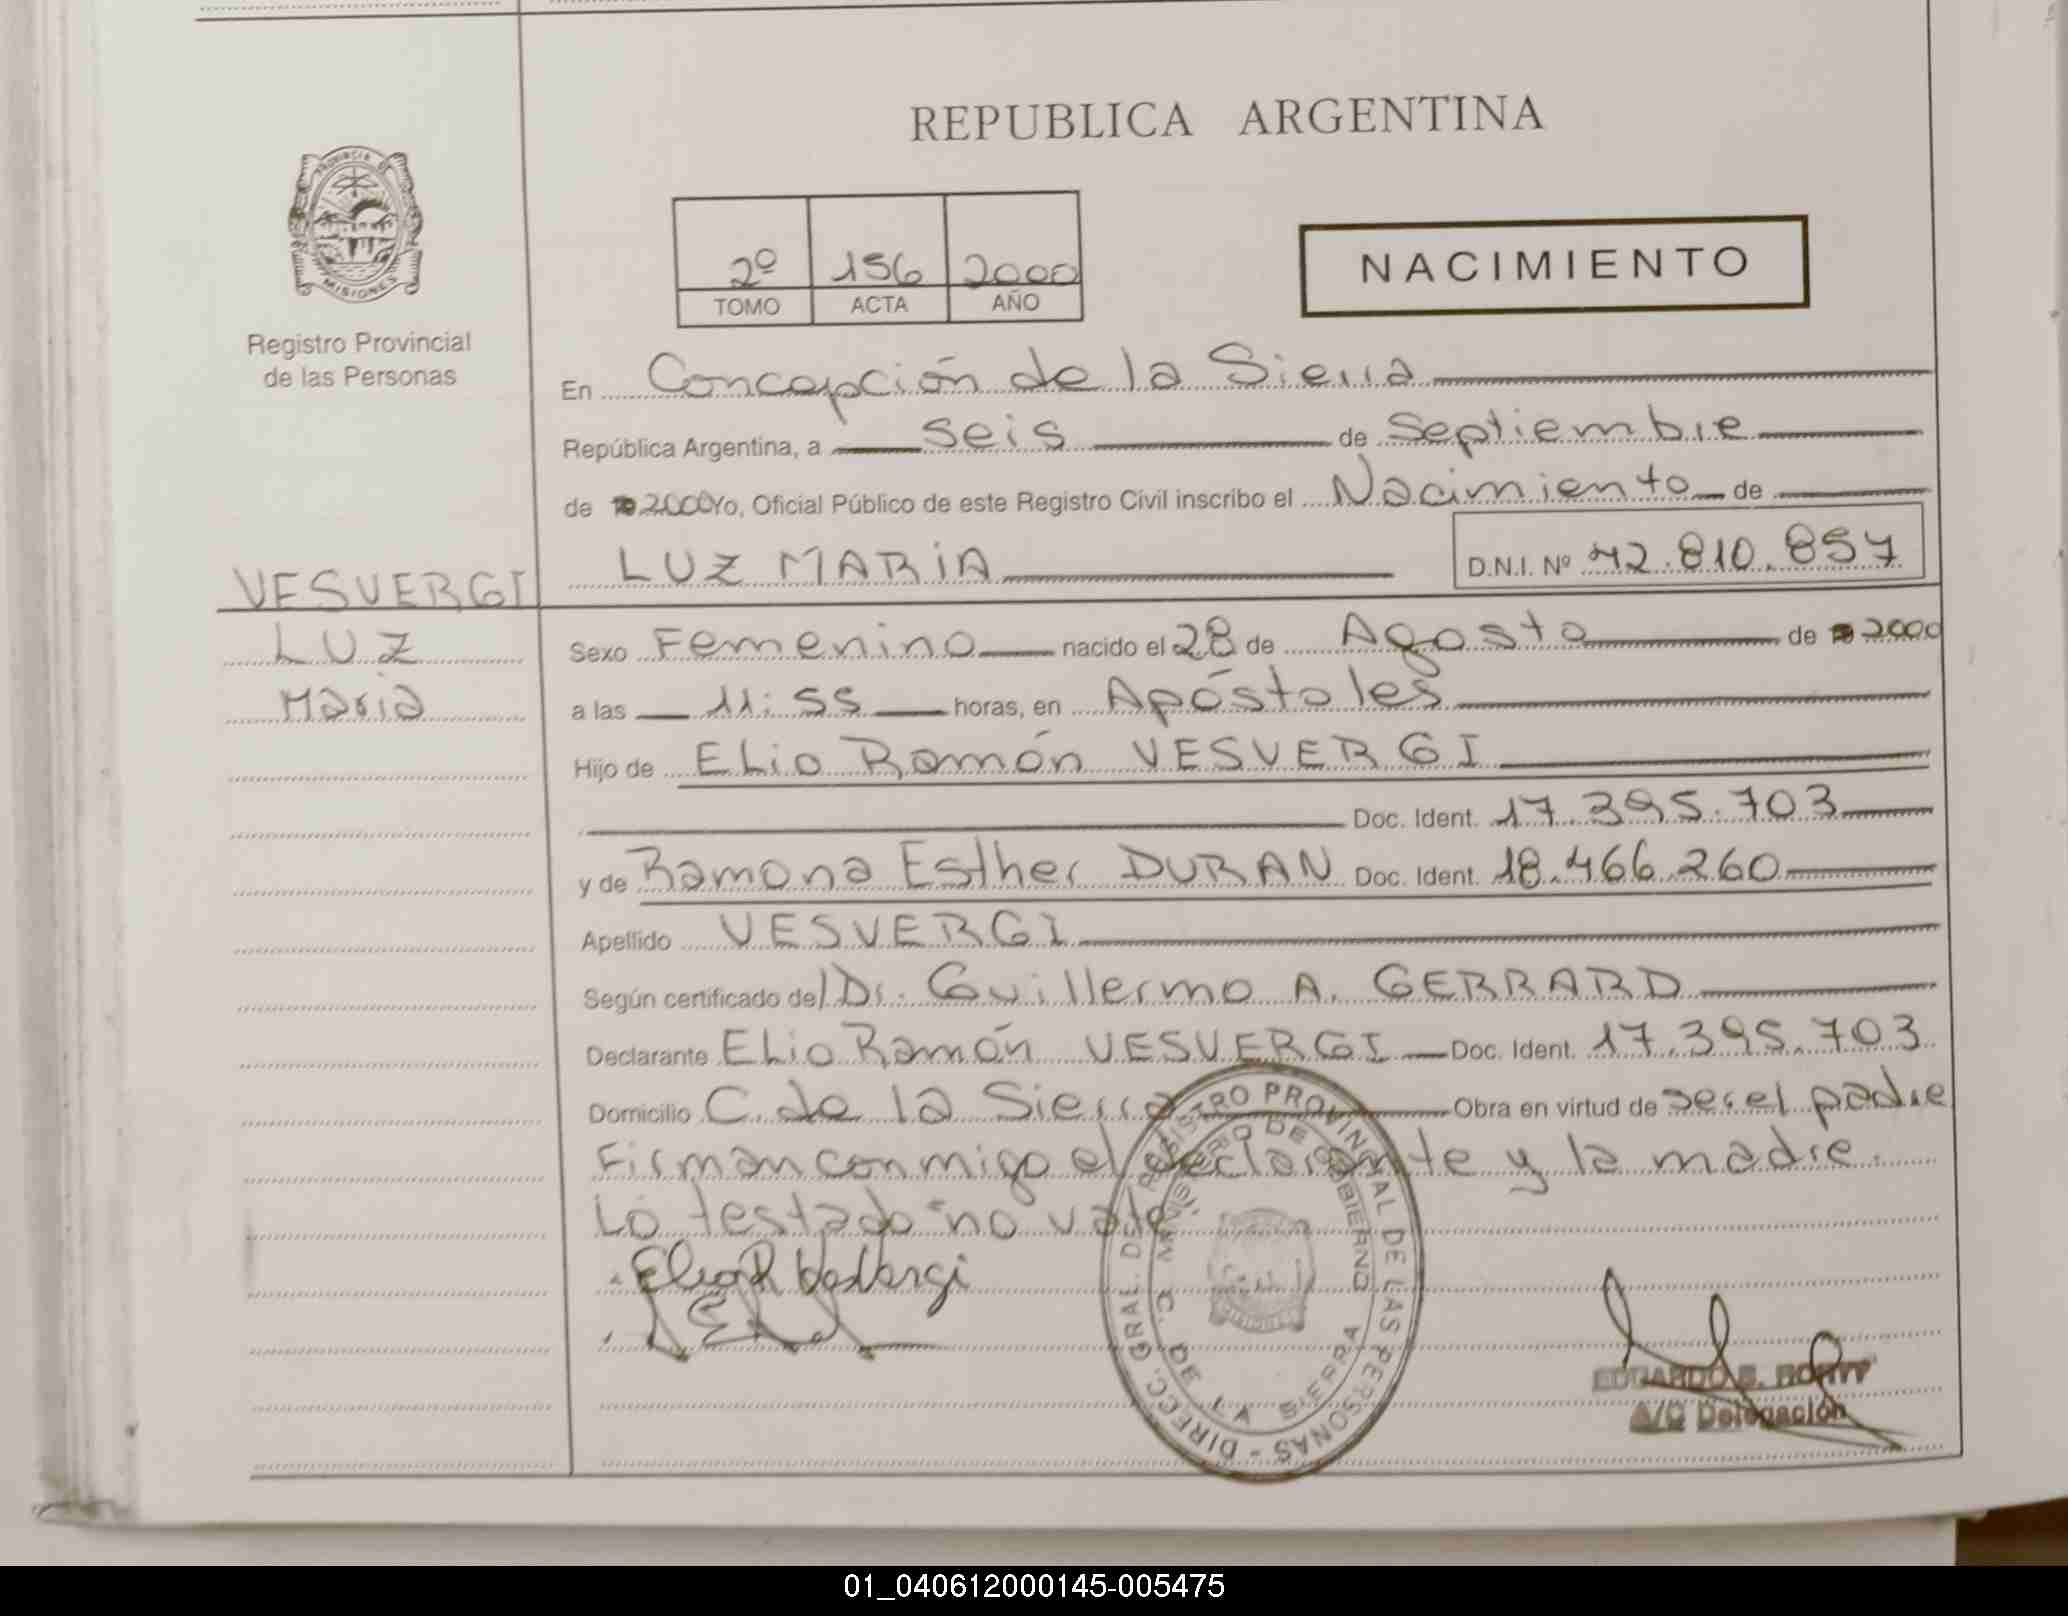 REPUBLICA ARGENTINA
PROVINCIA DE MISIONES
Registro Provincial
de las Personas
2º 156 2000
TOMO ACTA AÑO
NACIMIENTO
En Concepción de la Sierra
República Argentina, a seis de Septiembre
de 2000 Yo, Oficial Público de este Registro Civil inscribo el Nacimiento de
LUZ MARIA D.N.I. Nº 42.810.857
VESVERGI
LUZ
Maria
Sexo Femenino nacido el 28 de Agosto de 2000
a las 11:55 horas, en Apóstoles
Hijo de Elio Ramón VESVERGI
Doc. Ident. 17.395.703
y de Ramona Esther DURAN Doc. Ident. 18.466.260
Apellido VESVERGI
Según certificado del Dr. Guillermo A. GERRARD
Declarante Elio Ramón VESVERGI Doc. Ident. 17.395.703
Domicilio C. de la Sierra Obra en virtud de ser el padre
Firman conmigo el declarante y la madre.
Lo testado no vale
DIRECC. GRAL. DE REGISTRO PROVINCIAL DE LAS PERSONAS -
MINISTERIO DE GOBIERNO
C. DE LA SIERRA
EDUARDO
A/C Delegación
01_040612000145-005475